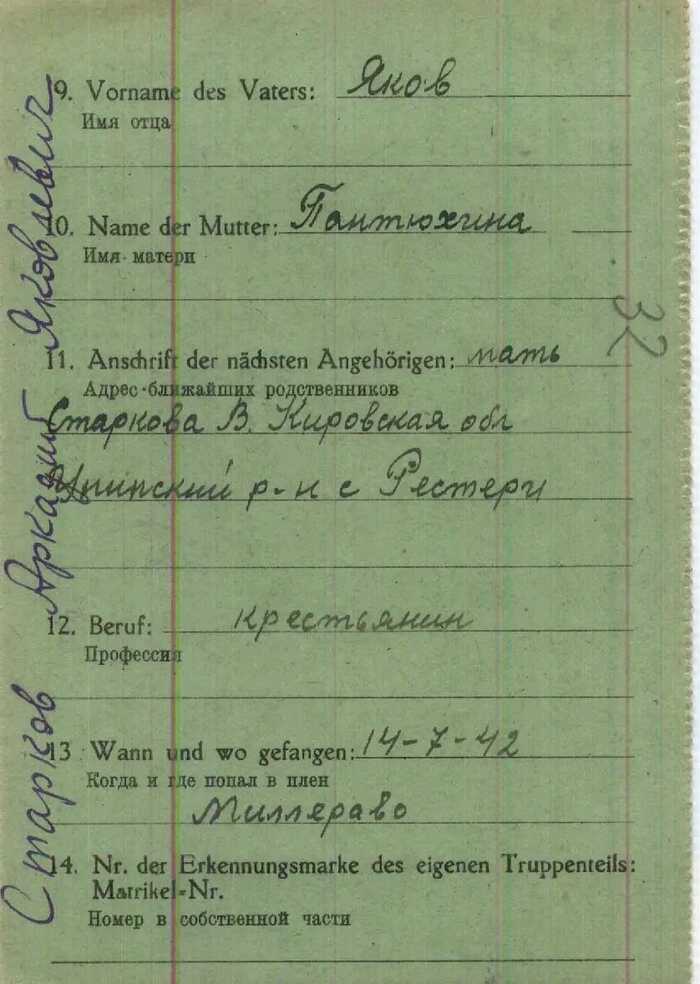 9. Vorname des Vaters: Яков
Имя отца
10. Name der Mutter: Пантюхина
Имя матери
11. Anschrift der nächsten Angehörigen: мать
Адрес ближайших родственников
Старкова В. Кировская обл
р-н с Рестери
12. Beruf: крестьянин
Профессия
13 Wann und wo gefangen: 14-7-42
Когда и где попал в плен
Миллераво
14. Nr. der Erkennungsmarke des eigenen Truppenteils:
Matrikel-Nr.
Номер в собственной части
Старков Аркадий Яковлевич
32